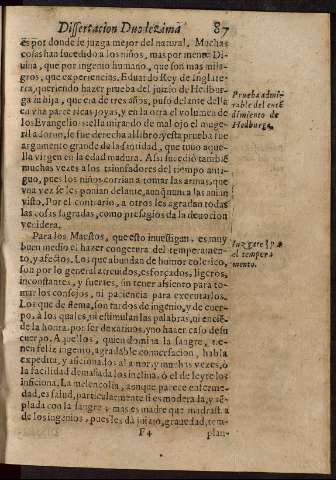 Dissertacion Duodezima 87
es por donde se juzga mejor del natural. Muchas
cosas han sucedido a los niños, mas por mente Di-
uina, que por ingenio humano, que son mas mila-
gros, que experiencias. Eduardo Rey de Inglate
rra, queriendo hazer prueba del juizio de Heilburga
su hija, que era de tres años, puso delante della
en vna parte ricas joyas, y en la otra el volumen de
los Evangelios: ella mirando de mal ojo el
oro, se fue derecha al libro: y esta prueba fue
argumento grande de la santidad, que tuuo aque-
lla virgen en la edad madura. Assi sucediò tambiẽ
muchas vezes a los triunfadores del tiempo anti-
guo, pues los niños corrian a tomar las armas, que
vna vez se les ponian delante, aunq̃ nunca las auiã
visto. Por el contrario, a otros les agradan todas
las cosas sagradas, como presagios de la deuocion
venidera.
Para los Maestros, que esto inuestigan, es muy
buen medio el hazer congetura del temperamen-
to, y afectos. Los que abundan de humor colerico,
son por lo general atreuidos, esforçados, ligeros,
inconstantes, y fuertes, sin tener assiento para to-
mar los consejos, ni paciencia para executarlos.
Los que de flema, son tardos de ingenio, y de cuer-
po, a los quales, ni estimulan las palabras, ni enciẽ-
de la honra, por ser dexatiuos, y no hazer caso de su
cuerpo. Aquellos, quien domina la sangre, tie-
nen feliz ingenio, agradable conuersacion, habla
expedita, y aficionados al amor, y muchas vezes, o
la facilidad demasiada los inclina, ò el deleyte los
inficiona. La melancolia, aunque parece enferme-
dad, es salud, particularmente si es moderada, y tẽ-
plada con la sangre; mas es madre que madrastra
de los ingenios, pues les dà juizio, grauedad, tem-
F 4 plan-
Prueba admi-
rable del entẽ
dimiento de
Heilburga.
Juzgarse hà
el tempera
mento.